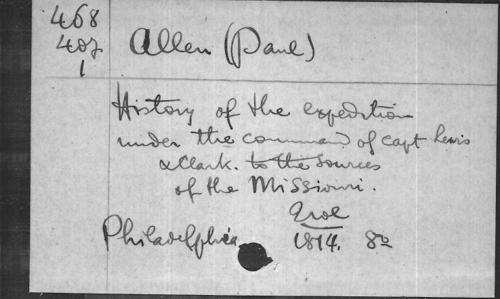 468
407
1
Allen (Paul)
History of the expedition
under the command of Capt Lewis
& Clark. to the Sources
of the Missouri.
2 vol
Philadelphia 1814. 8º